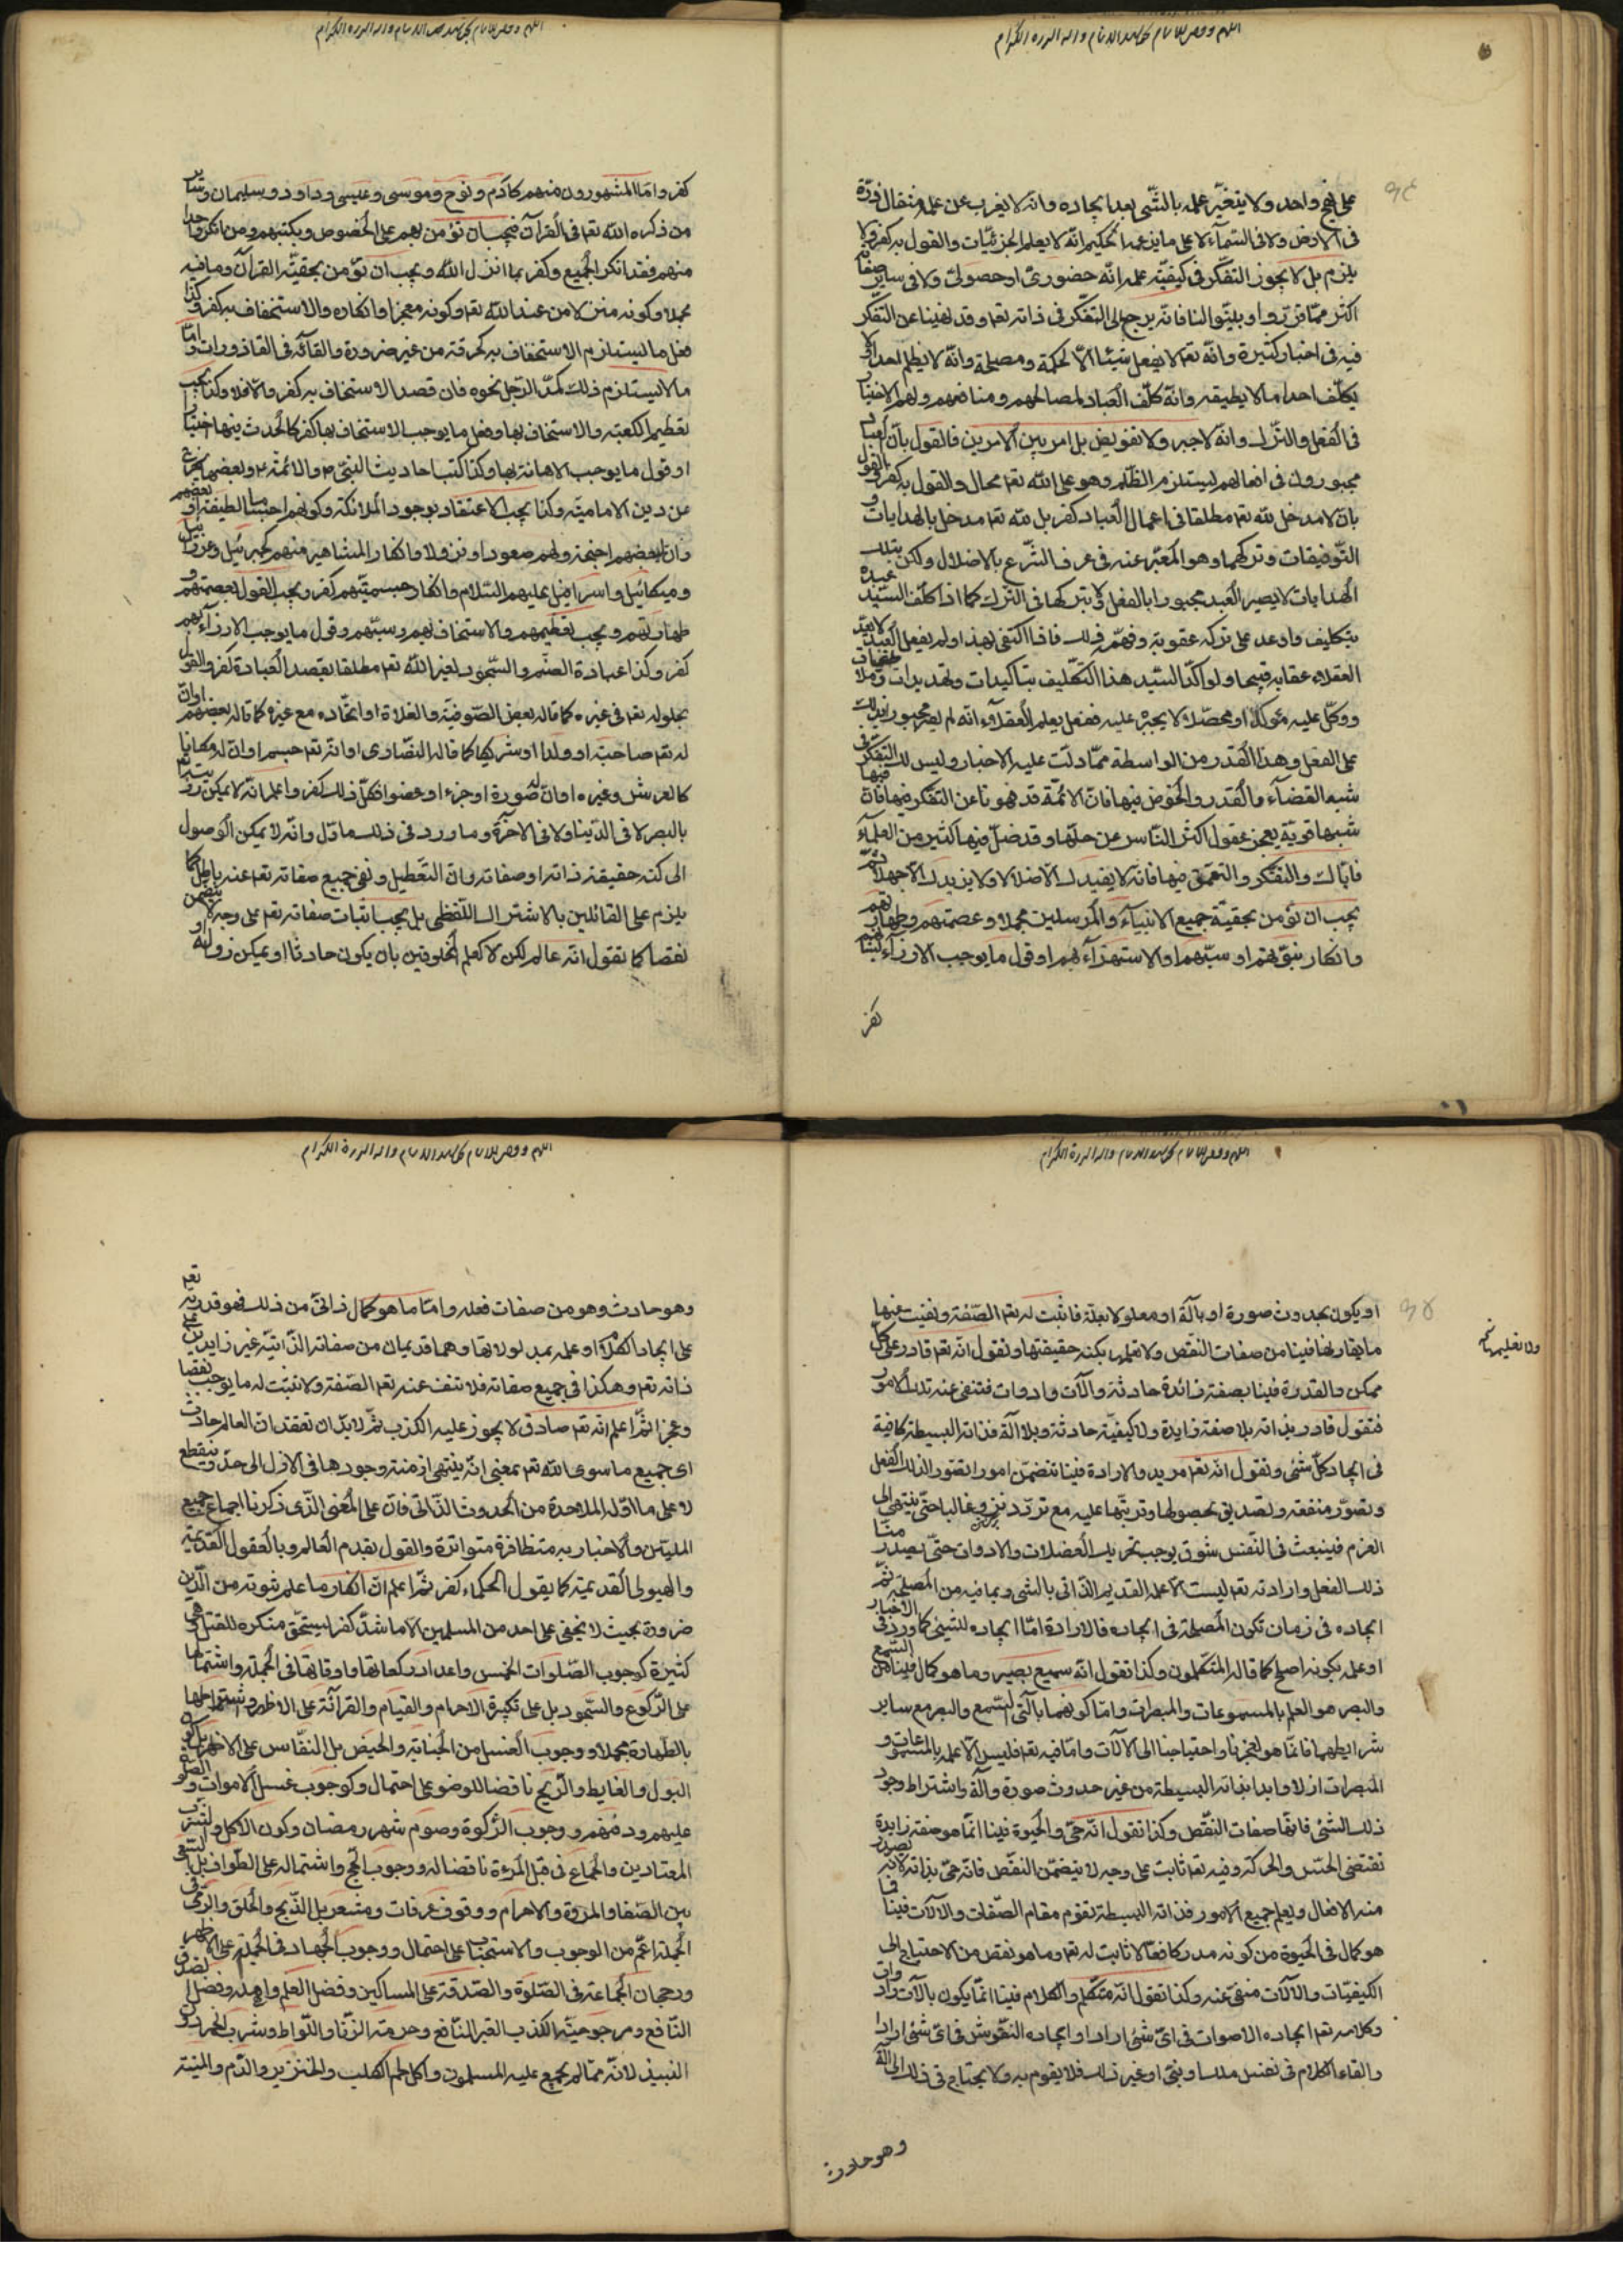 على نهج واحد ولا يتغيّر علمه بالشّى بعد ايجاده وانه لا يعزب عن علمه مثقال ذرّة
فى الارض ولا فى السّماء لا على ما يزعمه الحكيم انّه لا يعلم الجزئيّات والقول به كفر ولا
يلزم بل لا يجوز التفكّر فى كيفيّة علمه انّه حضورىّ او حصولىّ ولا فى ساير صفاته
اكثر ممّا قرّروا وبيّنوا لنا فانّه يرجع الى التفكّر فى ذاته تعه وقد نهينا عن التفكّر
فيه فى اخبار كثيرة وانّه تعه لا يفعل شيئا الاّ لحكمة ومصلحة وانّه لا يظلم احدا ولا
يكلّف احدا ما لا يطيقه وانّه كلّف العباد لمصالحهم ومنافعهم ولهم الاختيار
فى الفعل والتّرك وانّه لا جبر ولا تفويض بل امر بين الامرين فالقول بانّ العباد
مجبورون فى افعالهم يستلزم الظّلم وهو على الله تعه محال والقول به كفر والقول
بان لا مدخل لله تعه مطلقا فى اعمال العباد كفر بل لله تعه مدخل بالهدايات و
التّوفيقات وتركهما وهو المعبّر عنه فى عرف الشّرع بالاضلال ولكن بتلك
الهدايات لا يصير العبد مجبورا بالفعل ولا بتركها فى الترك كما اذا كلّف السّيّد عبده
بتكليف واوعد على تركه عقوبة وفهّمه ذلك فاذا اكتفى بهذا ولم يفعل العبد لا يعدّ
العقلاء عقابه قبيحا ولو اكّد السّيّد هذا التكليف بتاكيدات وتهديدات وملاطفات
ووكّل عليه موكّلا او محصّلا لا يجبره عليه ففعل يعلم العقلاء انّه لم يصر مجبورا بذلك
على الفعل وهذا القدر من الواسطة ممّا دلّت عليه الاخبار وليس لك التفكّر فى
شبه القضاء والقدر والخوض فيها فانّ الائمّة قد نهونا عن التفكّر فيها فانّ فيها
شبها قويّة يعجز عقول اكثر النّاس عن حلّها وقد ضلّ فيها كثير من العلماء
فايّاك والتفكّر والتعمّق فيها فانّه لا يفيدك الاّ ضلالا ولا يزيدك الاّ جهلا ثمّ
يجب ان تؤمن بحقيّة جميع الانبياء والمرسلين مجملا وعصمتهم وطهارتهم
وانكار نبوّتهم او سبّهم او الاستهزاء بهم او قول ما يوجب الازراء
كفر
كفر وامّا المشهورون منهم كآدم ونوح وموسى وعيسى وداود وسليمان وساير
من ذكره الله تعه فى القرآن فيجب ان تؤمن بهم على الخصوص وبكتبهم ومن انكر واحدا
منهم فقد انكر الجميع وكفر بما انزل الله ويجب ان تؤمن بحقيّة القرآن وما فيه
مجملا وكونه منزلا من عند الله تعه وكونه معجزا وانكاره والاستخفاف به كفر وكذا
فعل ما يستلزم الاستخفاف به كحرقه من غير ضرورة والقائه فى القاذورات وامّا
ما لا يستلزم ذلك كمدّ الرّجل نحوه فان قصد الاستخفاف به كفر والاّ فلا وكذا يجب
تعظيم الكعبة والاستخفاف بها وفعل ما يوجب الاستخفاف بها كفر كالحدث فيها اختيارا
او قول ما يوجب الاهانة بها وكذا كتب احاديث النبىّ ص والائمّة ع وبعضها يخرج
عن دين الاماميّة وكذا يجب الاعتقاد بوجود الملائكة وكونهم اجساما لطيفة او بعضهم
وانّ لبعضهم اجنحة ولهم صعودا ونزولا وانكار المشاهير منهم كجبرئيل وعزرائيل
وميكائيل واسرافيل عليهم السّلام وانكار جسميّتهم كفر ويجب القول بعصمتهم و
طهارتهم ويجب تعظيمهم والاستخفاف بهم وسبّهم وقول ما يوجب الازراء بهم
كفر وكذا عبادة الصّنم والسّجود لغير الله تعه مطلقا بقصد العبادة كفر والقول
بحلوله تعه فى غيره كما قاله بعض الصّوفيّة والغلاة او اتّحاده مع غيره كما قاله بعضهم او انّ
له تعه صاحبة او ولدا او شريكا كما قاله النّصارى او انّه تعه جسم او انّ له مكانا
كالعرش وغيره او انّ له صورة او جزء او عضوا فكلّ ذلك كفر واعلم انّه لا يمكن رؤيته
بالبصر لا فى الدّنيا ولا فى الآخرة وما ورد فى ذلك ماوّل وانّه لا يمكن الوصول
الى كنه حقيقة ذاته او صفاته وانّ التّعطيل ونفى جميع صفاته تعه عنه باطل كما
يلزم على القائلين بالاشتراك اللّفظى بل يجب اثبات صفاته تعه على وجه لا يتضمّن
نقصا كما تقول انّه عالم لكن لا كعلم المخلوقين بان يكون حادثا او يمكن زواله او
او يكون بحدوث صورة او بآلة او معلولا بعلّة فاثبت له تعه الصّفة ونفيت عنها
ما يقارنها فينا من صفات النّقص ولا تعلّمها بكنه حقيقتها وتقول انّه تعه قادر على كلّ
ممكن والقدرة فينا بصفة زائدة حادثة وآلات وادوات فتنفى عنه تلك الامور
فتقول قادر بذاته بلا صفة زايدة ولا كيفيّة حادثة وبلا آلة فذاته البسيطة كافية
فى ايجاد كلّ شئ وتقول انّه تعه مريد والارادة فينا تتضمّن امورا تصوّر الذلك الفعل
وتصوّر منفعة وتصديق بحصولها وترتّبها عليه مع تردّد غالبا حتّى ينتهى الى
العزم فينبعث فى النّفس شوق يوجب تحريك العضلات والادوات حتّى يصدر منّا
ذلك الفعل وارادته تعه ليست الاّ علمه القديم الذّاتى بالشّى وبما فيه من المصلحة ثمّ
ايجاده فى زمان تكون المصلحة فى ايجاده فالارادة امّا ايجاده للشيئ كما ورد فى الاخبار
او علمه بكونه اصلح كما قاله المتكلّمون وكذا تقول انّه سميع بصير وما هو كمال فينا من السّمع
والبصر هو العلم بالمسموعات والمبصرات وامّا كونهما بآلتى السّمع والبصر مع ساير
شرايطهما فانّما هو لعجزنا واحتياجنا الى الآلات وامّا فيه تعه فليس الاّ علمه بالمسموعات و
المبصرات ازلا وابدا بذاته البسيطة من غير حدوث صورة وآلة واشتراط وجود
ذلك الشّئ فانّها صفات النّقص وكذا تقول انّه حىّ والحيوة فينا انّما هو صفة زايدة
تقتضى الحسّ والحركة وفيه تعه ثابت على وجه لا يتضمّن النقص فانّه حىّ بذاته لانّه يصدر
منه الافعال ويعلم جميع الامور فذاته البسيطة تقوم مقام الصّفات والآلات فينا فما
هو كمال فى الحيوة من كونه مدركا فعّالا ثابت له تعه وما هو نقص من الاحتياج الى
الكيفيّات والآلات منفىّ عنه وكذا تقول انّه متكلّم والكلام فينا انّما يكون بالآلات وادوات
وكلامه تعه ايجاده الاصوات فى اىّ شئ اراد او ايجاده النّقوش فى اىّ شئ اراد
والقاء الكلام فى نفس ملك او نبىّ او غير ذلك فلا يقوم به ولا يحتاج فى ذلك الى آلة
وهو حادث
وهو حادث وهو من صفات فعله وامّا ما هو كمال ذاتىّ من ذلك فهو قدرته تعه
على ايجاد الكلام او علمه بمدلولاتها وهما قديمان من صفاته الذّاتيّة غير زايدين على
ذاته تعه وهكذا فى جميع صفاته فلا تنف عنه تعه الصّفة ولا تثبت له ما يوجب نقصا
وعجزا ثمّ اعلم انّه تعه صادق لا يجوز عليه الكذب ثمّ لا بدّ ان تعتقد انّ العالم حادث
اى جميع ما سوى الله تعه بمعنى انّه ينتهى ازمنة وجودها فى الازل الى حدّ وينقطع
لا على ما اوّله الملاحدة من الحدوث الذّاتى فانّ على المعنى الذّى ذكرنا اجماع جميع
المليّين والاخبار به متظافرة متواترة والقول بقدم العالم وبالعقول القديمة
والهيولى القديمة كما يقول الحكماء كفر ثمّ اعلم انّ انكار ما علم ثبوته من الدّين
ضرورة بحيث لا يخفى على احد من المسلمين الاّ ما شذّ كفر يستحقّ منكره للقتل وهى
كثيرة كوجوب الصّلوات الخمس واعداد ركعاتها واوقاتها فى الجملة واشتمالها
على الرّكوع والسّجود بل على تكبيرة الاحرام والقيام والقراءة على الاظهر واشتراطها
بالطّهارة مجملا ووجوب الغسل من الجنابة والحيض بل النّفاس على الاظهر بل كون
البول والغايط والرّيح ناقضا للوضوء على احتمال وكوجوب غسل الاموات والصّلوة
عليهم ودفنهم ووجوب الزّكوة وصوم شهر رمضان وكون الاكل والشّرب
المعتادين والجماع فى قبل المرءة ناقضا له ووجوب الحجّ واشتماله على الطّواف بل السّعى
بين الصّفا والمروة والاحرام ووقوف عرفات ومشعر بل الذّبح والحلق والرّمى فى
الجملة اعمّ من الوجوب والاستحباب على احتمال ووجوب الجهاد فى الجملة على الاظهر
ورجحان الجماعة فى الصّلوة والصّدقة على المساكين وفضل العلم واهله وفضل الصّدق
النّافع ومرجوحيّة الكذب الغير النّافع وحرمة الزّنا واللّواط وشرب الخمر دون
النبيذ لانّه ممّا لم يجمع عليه المسلمون واكل لحم الكلب والخنزير والدّم والميتة